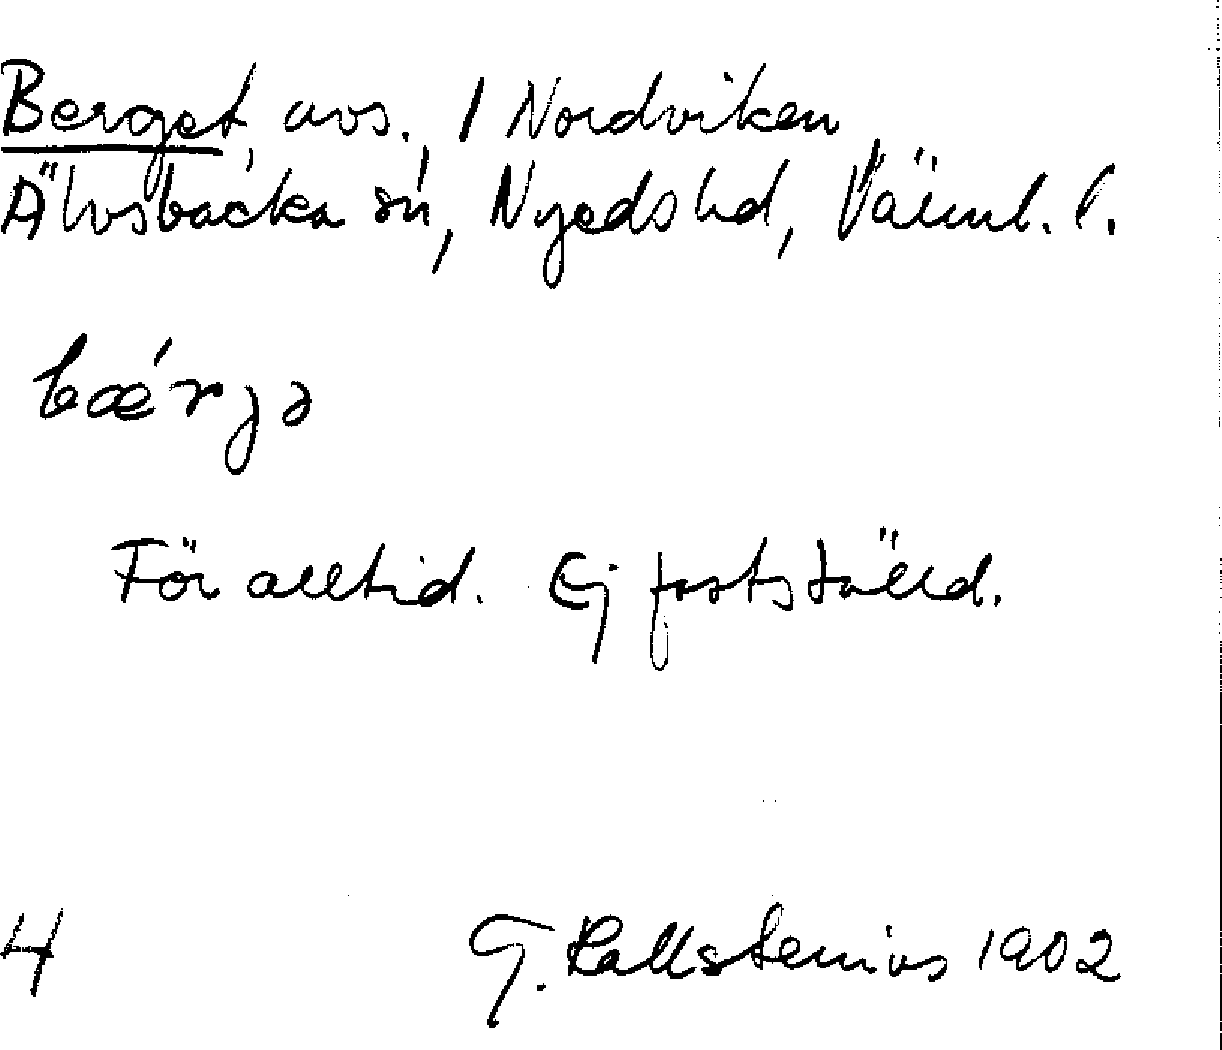 Berget, avs., 1 Nordviken
Älvsbacka sn, Nyeds hd, Värml. l.
bærjə
För alltid. Ej fastställd.
4 G. Kallstenius 1902